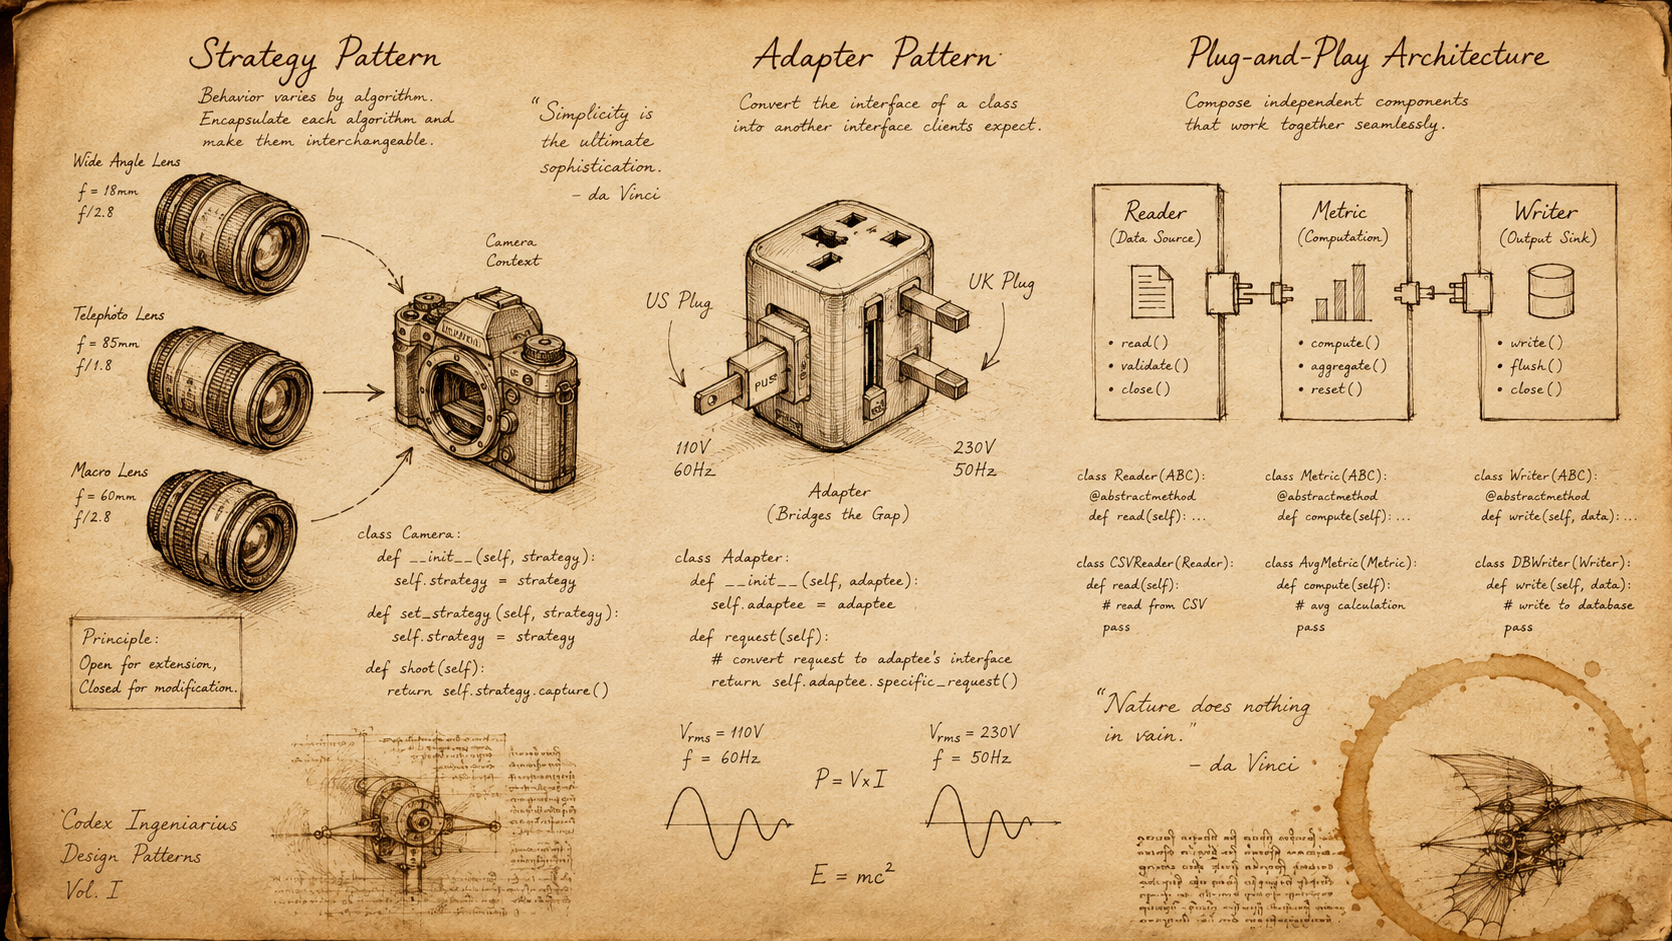 Strategy Pattern
Behavior varies by algorithm.
Encapsulate each algorithm and
make them interchangeable.
"Simplicity is
the ultimate
sophistication.
- da Vinci
Wide Angle Lens
f = 18mm
f/2.8
Camera
Context
Telephoto Lens
f = 85mm
f/1.8
Macro Lens
f = 60mm
f/2.8
class Camera:
def __init__(self, strategy):
self.strategy = strategy
def set_strategy(self, strategy):
self.strategy = strategy
def shoot(self):
return self.strategy.capture()
Principle:
Open for extension,
Closed for modification.
Codex Ingeniarius
Design Patterns
Vol. I
Adapter Pattern
Convert the interface of a class
into another interface clients expect.
US Plug
UK Plug
PUSH
110V
60Hz
230V
50Hz
Adapter
(Bridges the Gap)
class Adapter:
def __init__(self, adaptee):
self.adaptee = adaptee
def request(self):
# convert request to adaptee's interface
return self.adaptee.specific_request()
Vrms = 110V
f = 60Hz
Vrms = 230V
f = 50Hz
P = V×I
E = mc²
Plug-and-Play Architecture
Compose independent components
that work together seamlessly.
Reader
(Data Source)
• read()
• validate()
• close()
Metric
(Computation)
• compute()
• aggregate()
• reset()
Writer
(Output Sink)
• write()
• flush()
• close()
class Reader(ABC):
@abstractmethod
def read(self): ...
class Metric(ABC):
@abstractmethod
def compute(self): ...
class Writer(ABC):
@abstractmethod
def write(self, data): ...
class CSVReader(Reader):
def read(self):
# read from CSV
pass
class AvgMetric(Metric):
def compute(self):
# avg calculation
pass
class DBWriter(Writer):
def write(self, data):
# write to database
pass
"Nature does nothing
in vain."
- da Vinci